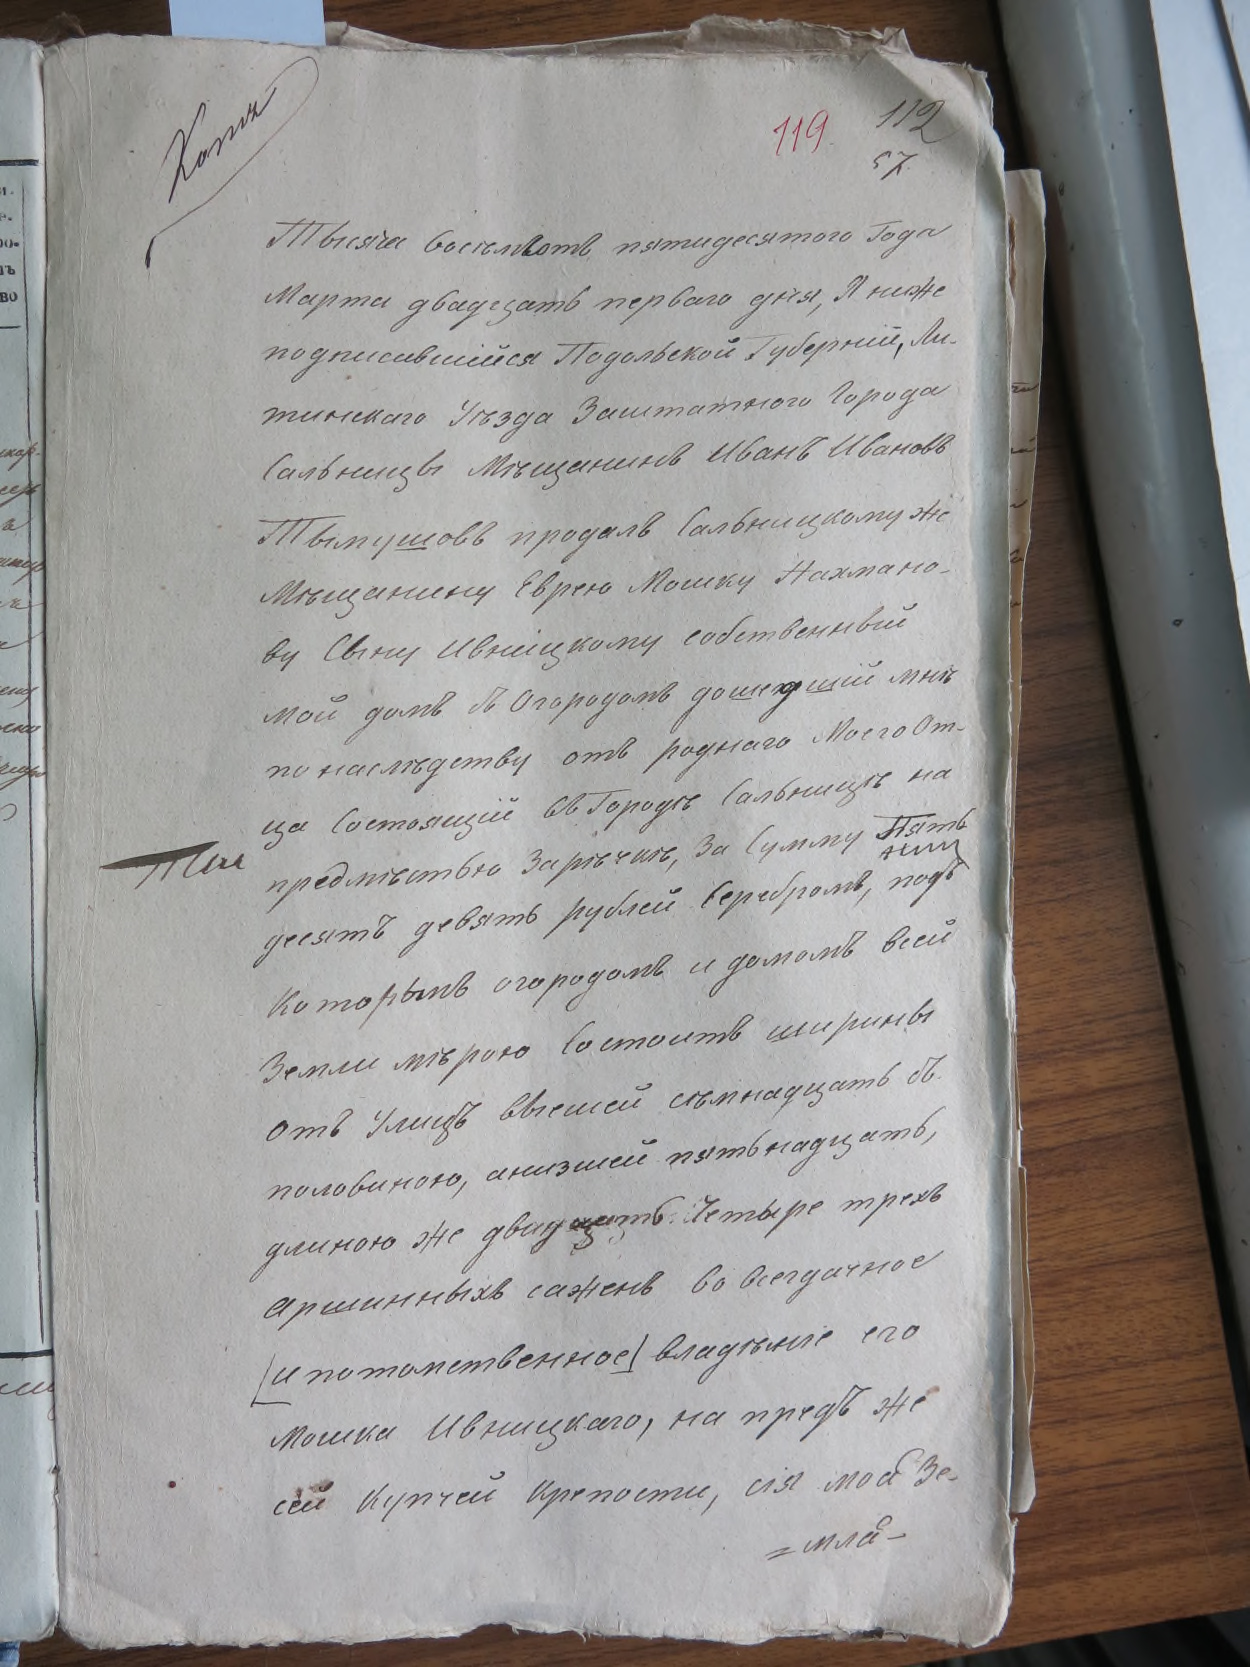 Копія
119
112
57.
Тысяча восемьсотъ пятидесятого Года
Марта двадцать перваго дня, Я ниже
подписавшійся Подольской Губерніи, Ли-
тинскаго Уѣзда Заштатного Города
Сальницы Мѣщанинъ Иванъ Ивановъ
Тымушовъ продалъ Сальницкому же
Мѣщанину Еврею Мошку Нахмано-
ву Сыну Ивницкому собственный
мой домъ съ Огородомъ дошедшій мнѣ
по наслѣдству отъ роднаго Моего От-
ца Состоящій въ Городѣ Сальницѣ на
предмѣстью Зарѣчье, За Сумму Пять
десятъ девять рублей Серебромъ, подъ
Которымъ огородомъ и домомъ всей
Земли мѣрою Состоитъ ширины
отъ Улицъ высшей семнадцать съ
половиною, анизшей пятьнадцать,
длиною же двадцать Четыре трехъ
аршинныхъ сажень во всегдачное
[и потомственное] владѣніе его
Мошка Ивницкаго, на предъ же
сей Купчей Крепости, сія моя Зе-
= мля -